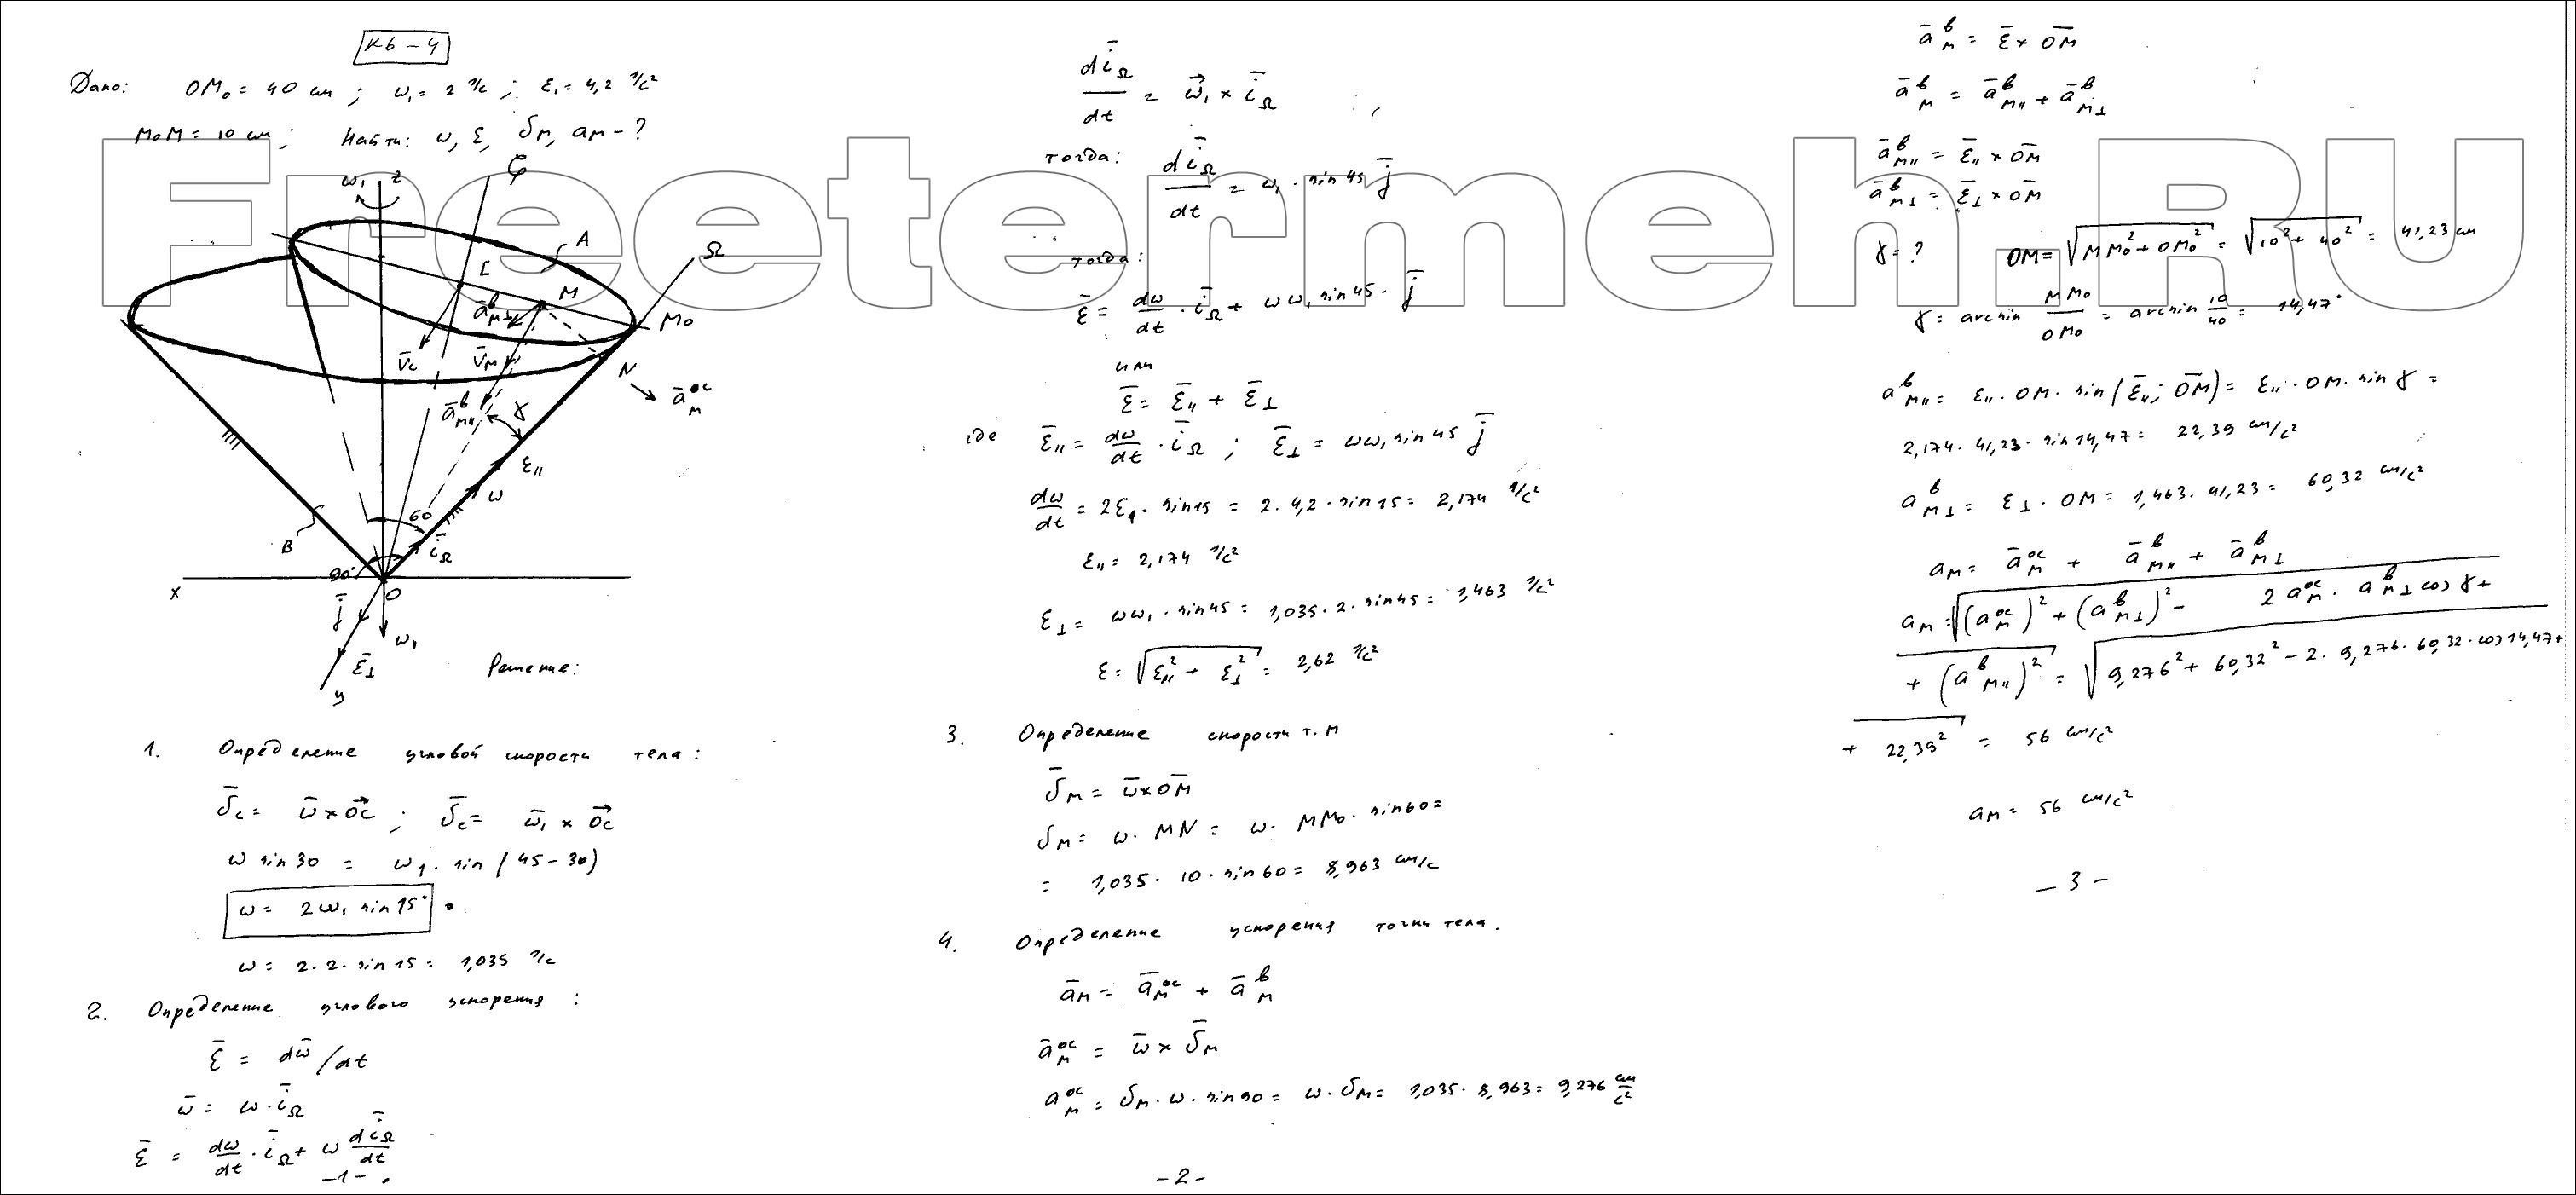 К6-4
Дано: OM₀ = 40 см ; ω₁ = 2 1/с ; ε₁ = 4,2 1/с²
M₀M = 10 см ; Найти: ω, ε, υм, aм - ?
Freetermeh.RU
ω₁ z ζ
A
Ω
C
M
M₀
ā^в_M⊥
V̄c
V̄м
N
ā^ос_м
ā^в_M∥
γ
ε∥
ω
60
B
ī_Ω
90°
x
O
j̄
ω₁
ε̄⊥
y
Решение:
1. Определение угловой скорости тела:
ῡc = ω̄ × OC ; ῡc = ω̄₁ × OC
ω sin 30 = ω₁ · sin (45 - 30)
ω = 2ω₁ sin 15°
ω = 2 · 2 · sin 15 = 1,035 1/с
2. Определение углового ускорения :
ε̄ = dω̄/dt
ω̄ = ω · ī_Ω
ε̄ = dω/dt · ī_Ω + ω dī_Ω/dt
-1-
dī_Ω/dt = ω₁ × ī_Ω
тогда: dī_Ω/dt = ω₁ · sin 45 j̄
тогда:
ε̄ = dω/dt · ī_Ω + ω ω₁ sin 45 · j̄
или
ε̄ = ε̄∥ + ε̄⊥
где ε̄∥ = dω/dt · ī_Ω ; ε̄⊥ = ωω₁ sin 45 j̄
dω/dt = 2ε₁ · sin 15 = 2 · 4,2 · sin 15 = 2,174 1/с²
ε∥ = 2,174 1/с²
ε⊥ = ωω₁ · sin 45 = 1,035 · 2 · sin 45 = 1,463 1/с²
ε = √(ε∥² + ε⊥²) = 2,62 1/с²
3. Определение скорости т. М
ῡм = ω̄ × OM
υм = ω · MN = ω · MM₀ · sin 60 =
= 1,035 · 10 · sin 60 = 8,963 см/с
4. Определение ускорения точки тела.
āм = ā^ос_м + ā^в_м
ā^ос_м = ω̄ × ῡм
a^ос_м = υм · ω · sin 90 = ω · υм = 1,035 · 8,963 = 9,276 см/с²
-2-
ā^в_м = ε̄ × OM
ā^в_м = ā^в_M∥ + ā^в_M⊥
ā^в_M∥ = ε̄∥ × OM
ā^в_M⊥ = ε̄⊥ × OM
γ = ? OM = √(MM₀² + OM₀²) = √(10² + 40²) = 41,23 см
γ = arcsin MM₀/OM₀ = arcsin 10/40 = 14,47°
a^в_M∥ = ε∥ · OM · sin (ε̄∥; OM) = ε∥ · OM · sin γ =
2,174 · 41,23 · sin 14,47 = 22,39 см/с²
a^в_M⊥ = ε⊥ · OM = 1,463 · 41,23 = 60,32 см/с²
aм = ā^ос_м + ā^в_M∥ + ā^в_M⊥
aм = √((a^ос_м)² + (a^в_M⊥)² - 2 a^ос_м · a^в_M⊥ cos γ +
+ (a^в_M∥)²) = √(9,276² + 60,32² - 2 · 9,276 · 60,32 · cos 14,47 +
+ 22,39²) = 56 см/с²
aм = 56 см/с²
-3-